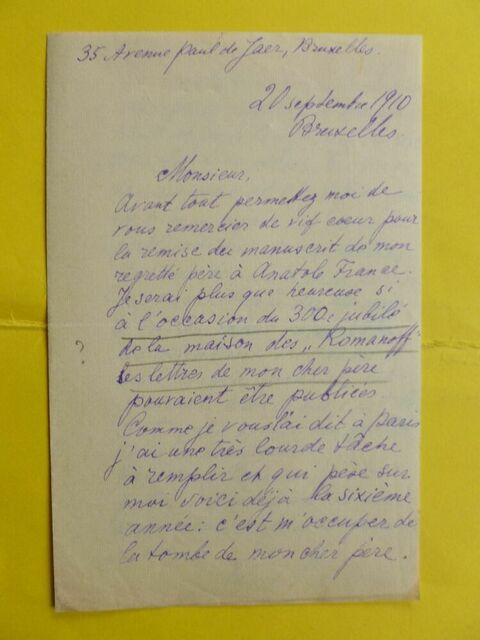 35 Avenue Paul de Jaer, Bruxelles.
20 septembre 1910
Bruxelles.
Monsieur,
Avant tout permettez moi de
vous remercier de vif coeur pour
la remise du manuscrit de mon
regretté père à Anatole France.
Je serai plus que heureuse si
à l'occasion du 300e jubilé
? de la maison des „Romanoff"
les lettres de mon cher père
pouvaient être publiés.
Comme je vous l'ai dit à Paris
j'ai une très lourde tâche
à remplir et qui pèse sur
moi voici déjà la sixième
année: c'est m'occuper de
la tombe de mon cher père.